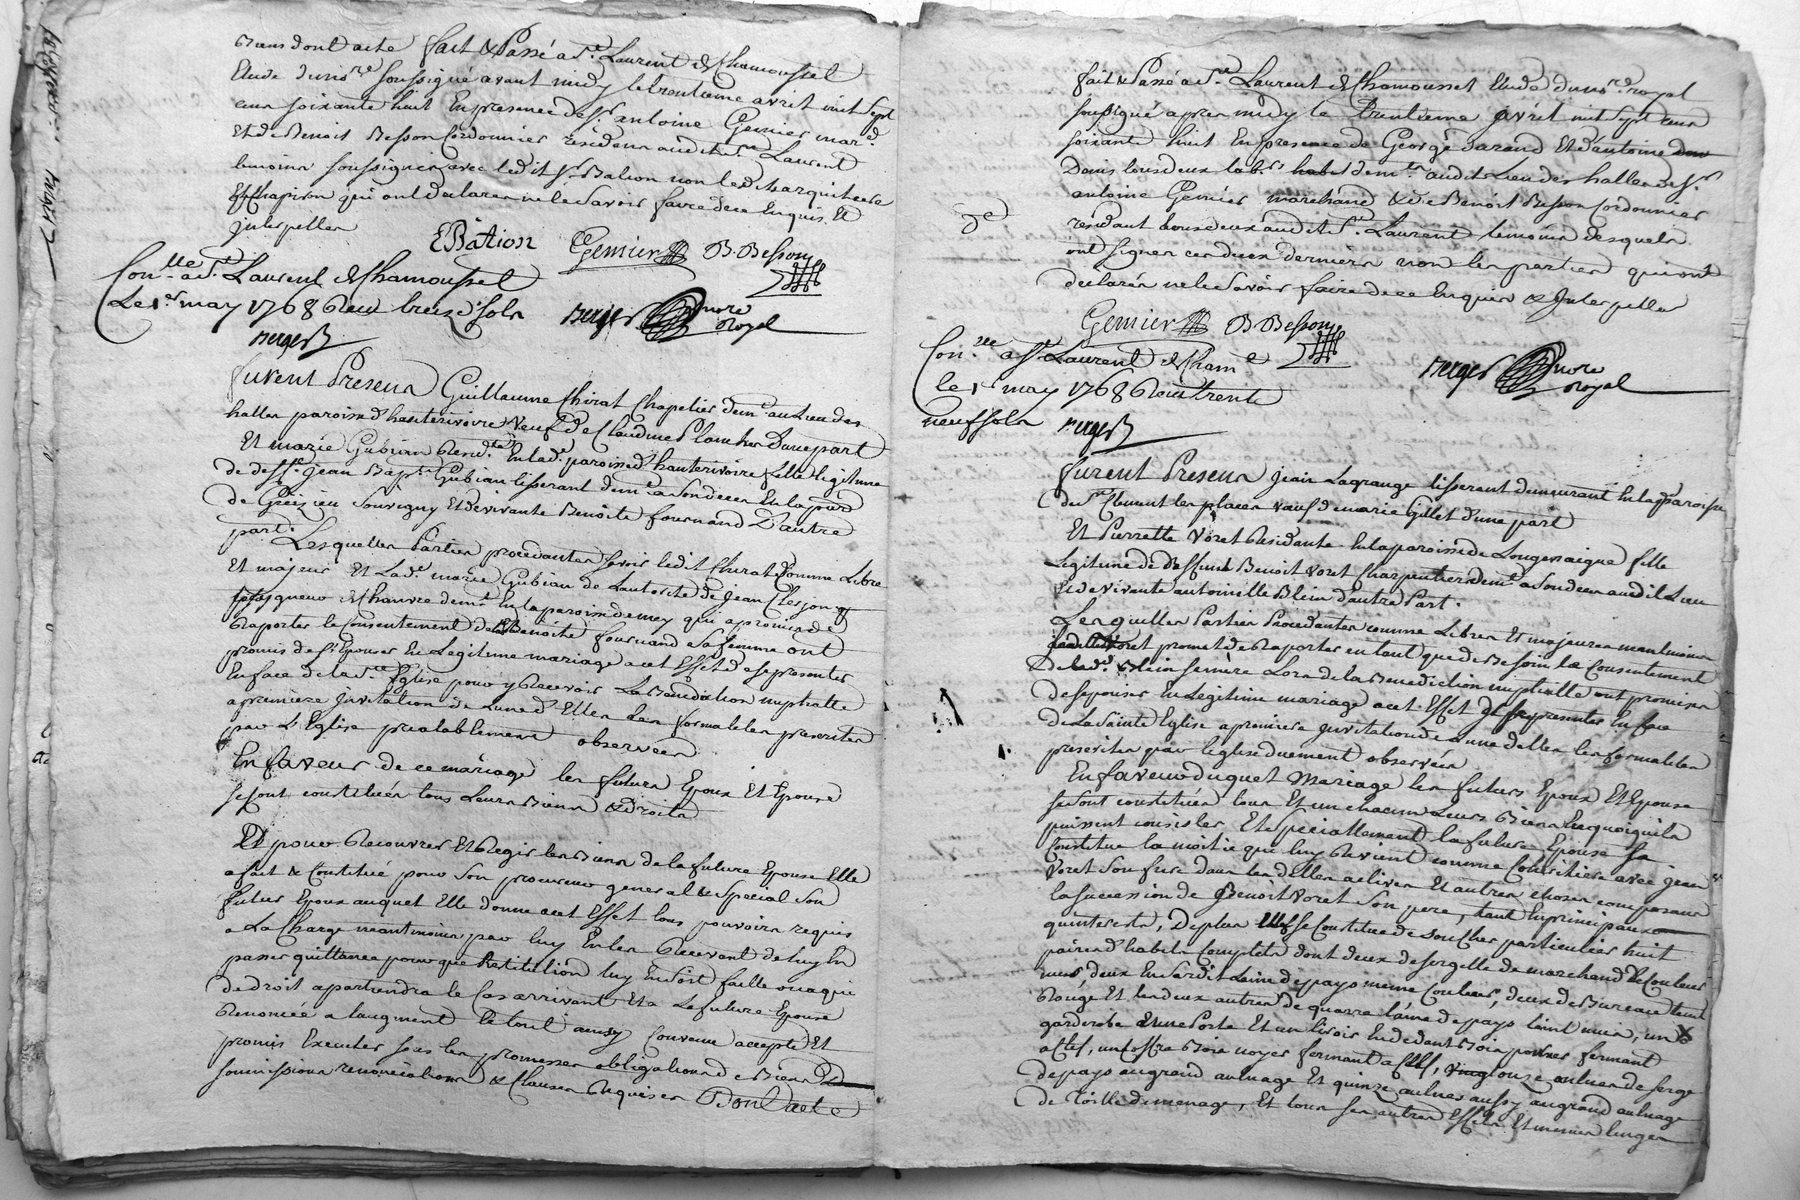 Biens dont acte fait & Passé a St. Laurent de Chamousset
Etude du nore soussigné avant midy le trentieme avril mil sept
cens soixante huit En presence de Sr. antoine Gemier mard.
Et de Benoit Besson Cordonnier résidens audit St. Laurent
temoins soussignés avec ledit Sr. Bation non led.
Et Chapiron qui ont declarés ne le Savoir faire de ce Enquis Et
Interpellés
EBâtion Gemier B. Besson
Conlle. a St. Laurent de Chamousset
Le 1er may 1768 Reçu treize sols Berger nore
royal
Berger
Furent Presens Guillaume Chirat Chapelier demt. au Lieu des
halles paroisse d'hauterivoire Veuf de Claudine Planchet D'une part
Et marie Gubian Residte. En lad. paroisse d'hauterivoire fille Legitime
de defft. Jean Bapte. Gubian tisserant demt. a Son deces En la paroisse
de Grézieu Souvigny Et de vivante Benoite fournand D'autre
part.
Lesquelles Parties procedantes Sçavoir ledit Chirat Comme Libre
Et majeur Et Lade. marie Gubian de Lautorité de Jean Clerjon
peigneur de Chanvre demt. En la paroisse de mey qui a promis de
Raporter le Consentement de Benoite fournand Sa femme ont
promis de S'Epouser En Legitime mariage a cet Effet de se presenter
En face de la Ste. Eglise pour y Recevoir La Bénédiction nuptialle
a premiere Invitation de L'une d'Elles Les formalités prescrites
par L'Eglise prealablement observées
En faveur de ce mariage les futurs Epoux Et Epouse
se sont constitués tous Leurs Biens & Droits
Et pour Recouvrer Et Regir les Biens de la future Epouse Elle
a fait & Constitué pour Son procureur general & Special Son
futur Epoux auquel Elle donne a cet Effet tous pouvoirs requis
a La Charge neantmoins par luy En les Recevant de luy En
passer quittance pour que Restitution luy En Soit faitte ou a qui
de droit apartiendra le Cas arrivant Et a La future Epouse
Renoncée a l'augment Le tout ainsy Convenu accepté Et
promis Executer sous les promesses obligations de Biens
soumissions renonciations & Clauses Requises Dont acte
fait & Passé a St. Laurent de Chamousset Etude du nore. royal
soussigné apres midy le Trentieme avril mil sept cens
soixante huit En presence de George Farand Et d'antoine
Denis tous deux labrs. habts demt. audit Lieu des halles de Sr.
antoine Gemier marchand & de Benoit Besson Cordonnier
résidant tous deux audit St. Laurent temoins desquels
ont signés ces deux derniers non les parties qui ont
declarés ne le Savoir faire de ce Enquis & Interpellés
Gemier B. Besson
Conlle a St. Laurent de Cham
le 1er may 1768 Reçu trente Berger nore
royal
neuf sols Berger
Furent Presens Jean Lagrange tisserant demeurant En la paroisse
de St. Clement les places veuf de marie Gillet d'une part
Et Pierrette Voret Residante En la paroisse de Longessaigne fille
Legitime de deffunt Benoit Voret Charpentier demt. a Son deces audit Lieu
Et de vivante antoinette Blein d'autre Part.
Lesquelles Parties Procedantes comme Libres Et majeures neantmoins
ladite Voret promet de Raporter en tant que de Besoin le Consentement
de lad. Blein sa mère Lors de la Benediction nuptialle ont promis
de se pouser En Legitime mariage a cet Effet de se presenter En face
de La Sainte Eglise a premiere Invitation de L'une d'elles les formalités
prescrites par l'Eglise duement observées
En faveur duquel Mariage les futurs Epoux Et Epouse
se sont constitués tous Et un chacun Leurs Biens En quoiqu'ils
puissent consister Et Specialement la future Epouse Se
Constitue la moitié qui luy Revient comme Cohéritiere avec Jean
Voret Son frere dans les dettes actives Et autres choses composant
la succession de Benoit Voret Son pere, tant En principaux
qu'interets, De plus Elle se Constitue de son Chef particulier huit
paires d'habits Complets dont deux de sergette de marchand de Couleur
deux En Cardis Laine de pays meme Couleur, deux de Bureau teint
Rouge Et les deux autres de quarré laine de pays teint, un
garderobe a une Porte Et un tiroir En dedans Bois poirier fermant
a Clef, un Coffre Bois noyer fermant a Clef, onze aulnes de serge
de pays au grand aulnage Et quinze aulnes aussy au grand aulnage
de Toille de menage, Et tous ses autres Effets Et menus linges